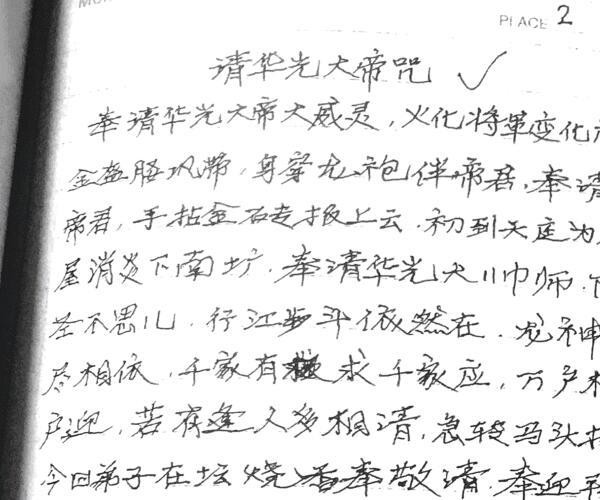 PLACE 2
请华光大帝咒 ✓
奉请华光大帝大威灵,火化将军变化
金盔 帶,身穿龙袍伴帝君,奉请
帝君,手拈金石 报上云.初到天庭为
屋消炎下南 .奉请华光大 师.
圣不思儿.行江步斗依然在.龙神
尽相依,千家有 求千家应,万户
户迎,若有逢人多相请,急转马头
今回弟子在坛烧香奉敬请.奉迎